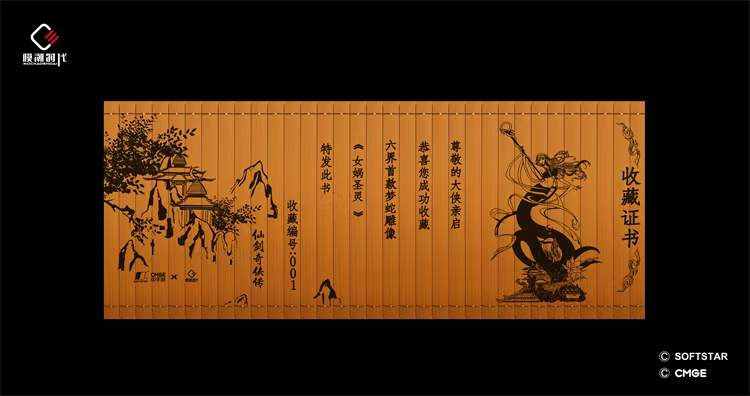 模潮时代
收藏证书
尊敬的大侠亲启
恭喜您成功收藏
六界首款梦蛇雕像
《女娲圣灵》
特发此书
收藏编号:001
仙剑奇侠传
CMGE
中手游
×
© SOFTSTAR
© CMGE